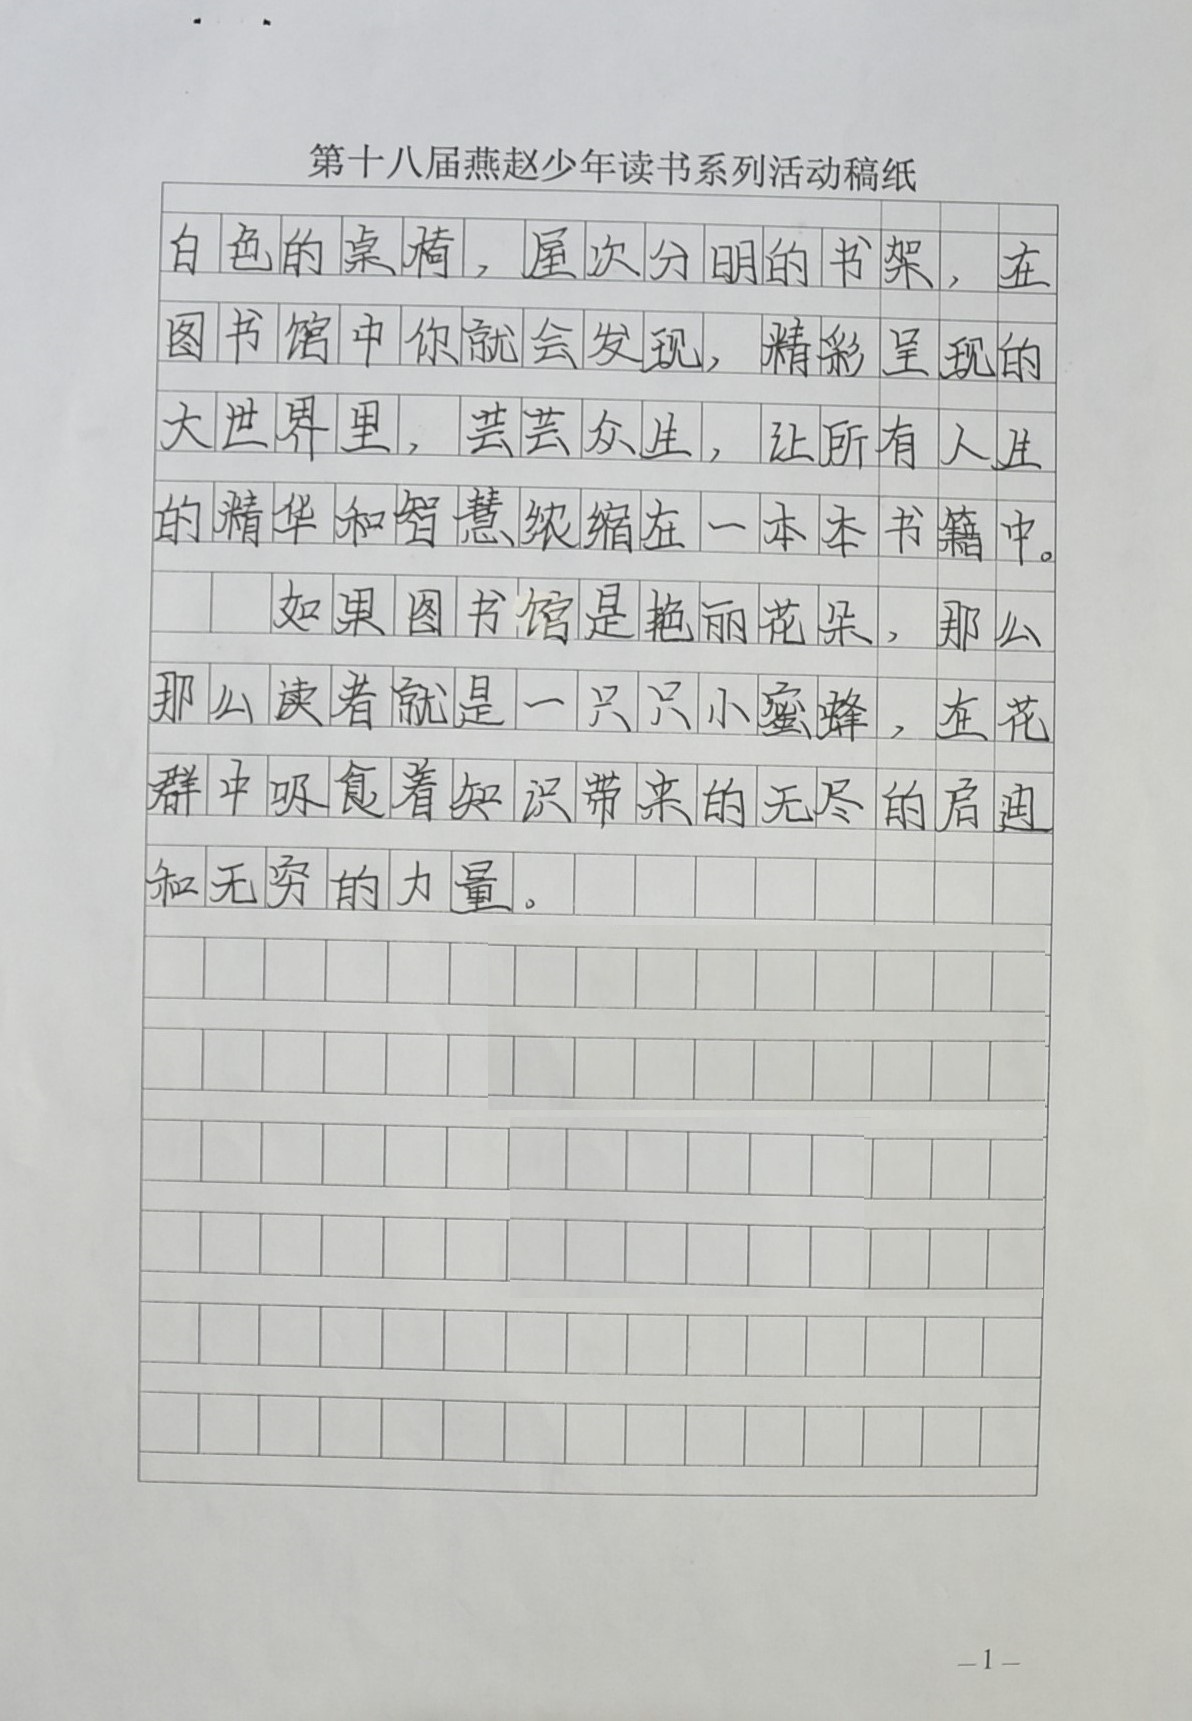 第十八届燕赵少年读书系列活动稿纸
白色的桌椅，屋次分明的书架，在
图书馆中你就会发现，精彩呈现的
大世界里，芸芸众生，让所有人生
的精华和智慧浓缩在一本本书籍中。
如果图书馆是艳丽花朵，那么
那么读者就是一只只小蜜蜂，在花
群中吸食着知识带来的无尽的启迪
和无穷的力量。
—1—